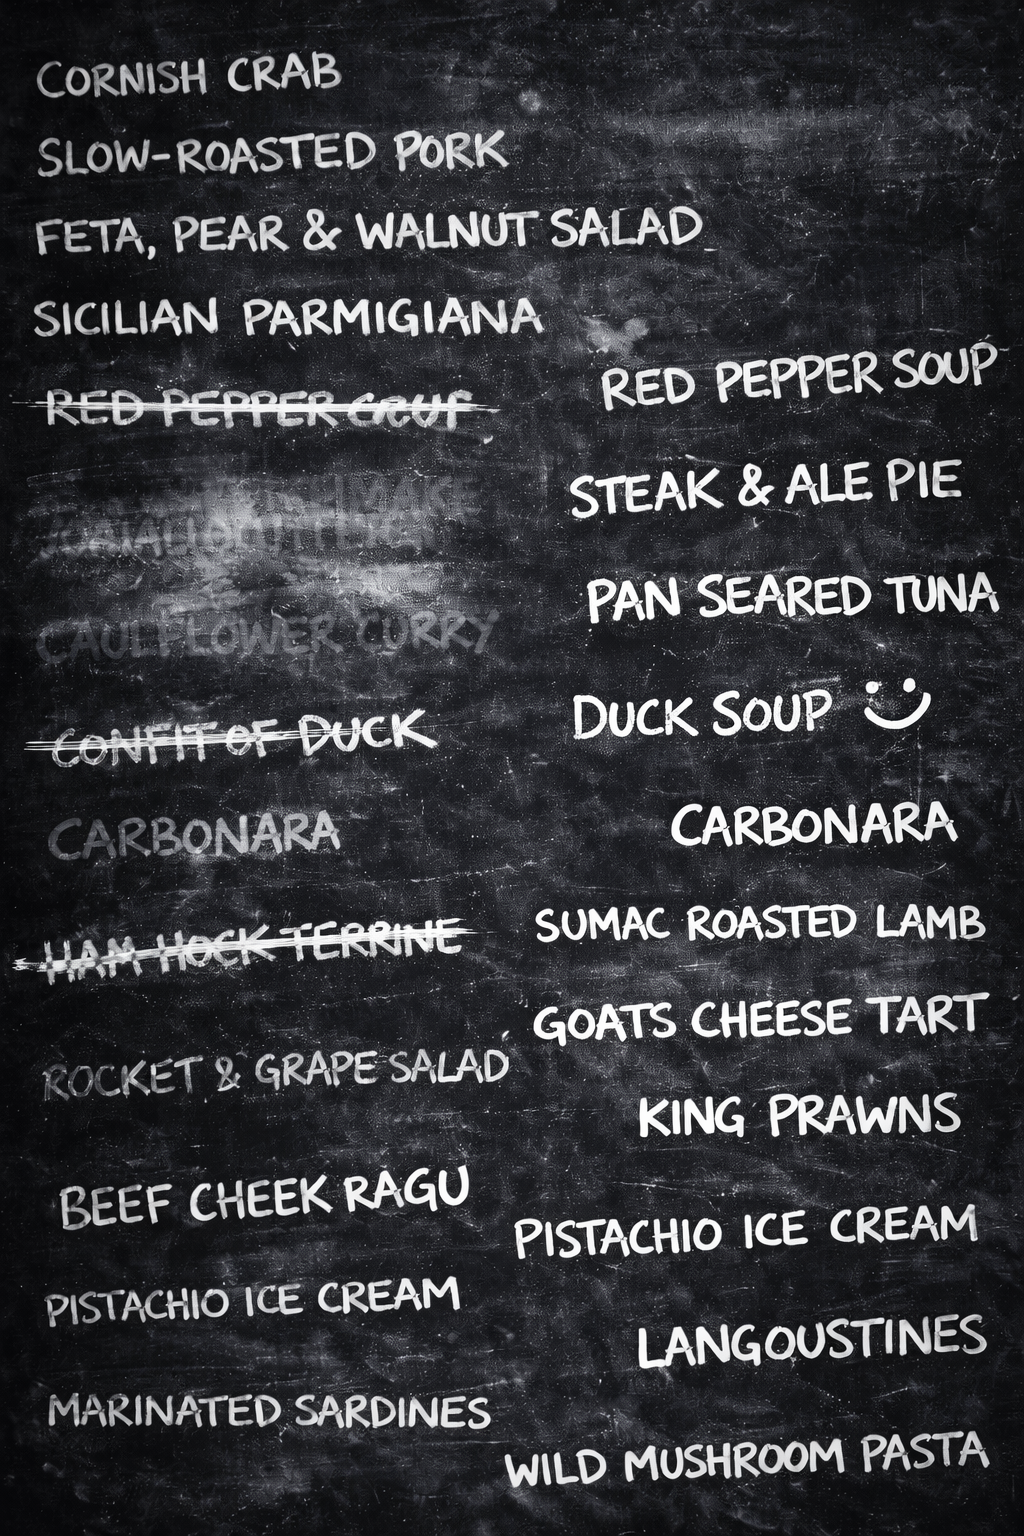 CORNISH CRAB
SLOW-ROASTED PORK
FETA, PEAR & WALNUT SALAD
SICILIAN PARMIGIANA
RED PEPPER
CAULIFLOWER CURRY
CONFIT OF DUCK
CARBONARA
HAM HOCK TERRINE
ROCKET & GRAPE SALAD
BEEF CHEEK RAGU
PISTACHIO ICE CREAM
MARINATED SARDINES
RED PEPPER SOUP
STEAK & ALE PIE
PAN SEARED TUNA
DUCK SOUP
CARBONARA
SUMAC ROASTED LAMB
GOATS CHEESE TART
KING PRAWNS
PISTACHIO ICE CREAM
LANGOUSTINES
WILD MUSHROOM PASTA